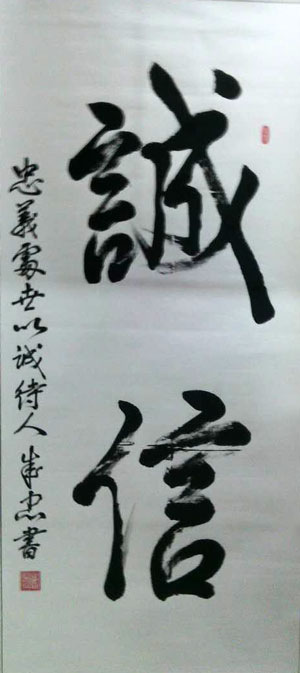 誠信
忠義處世以诚待人 成忠書